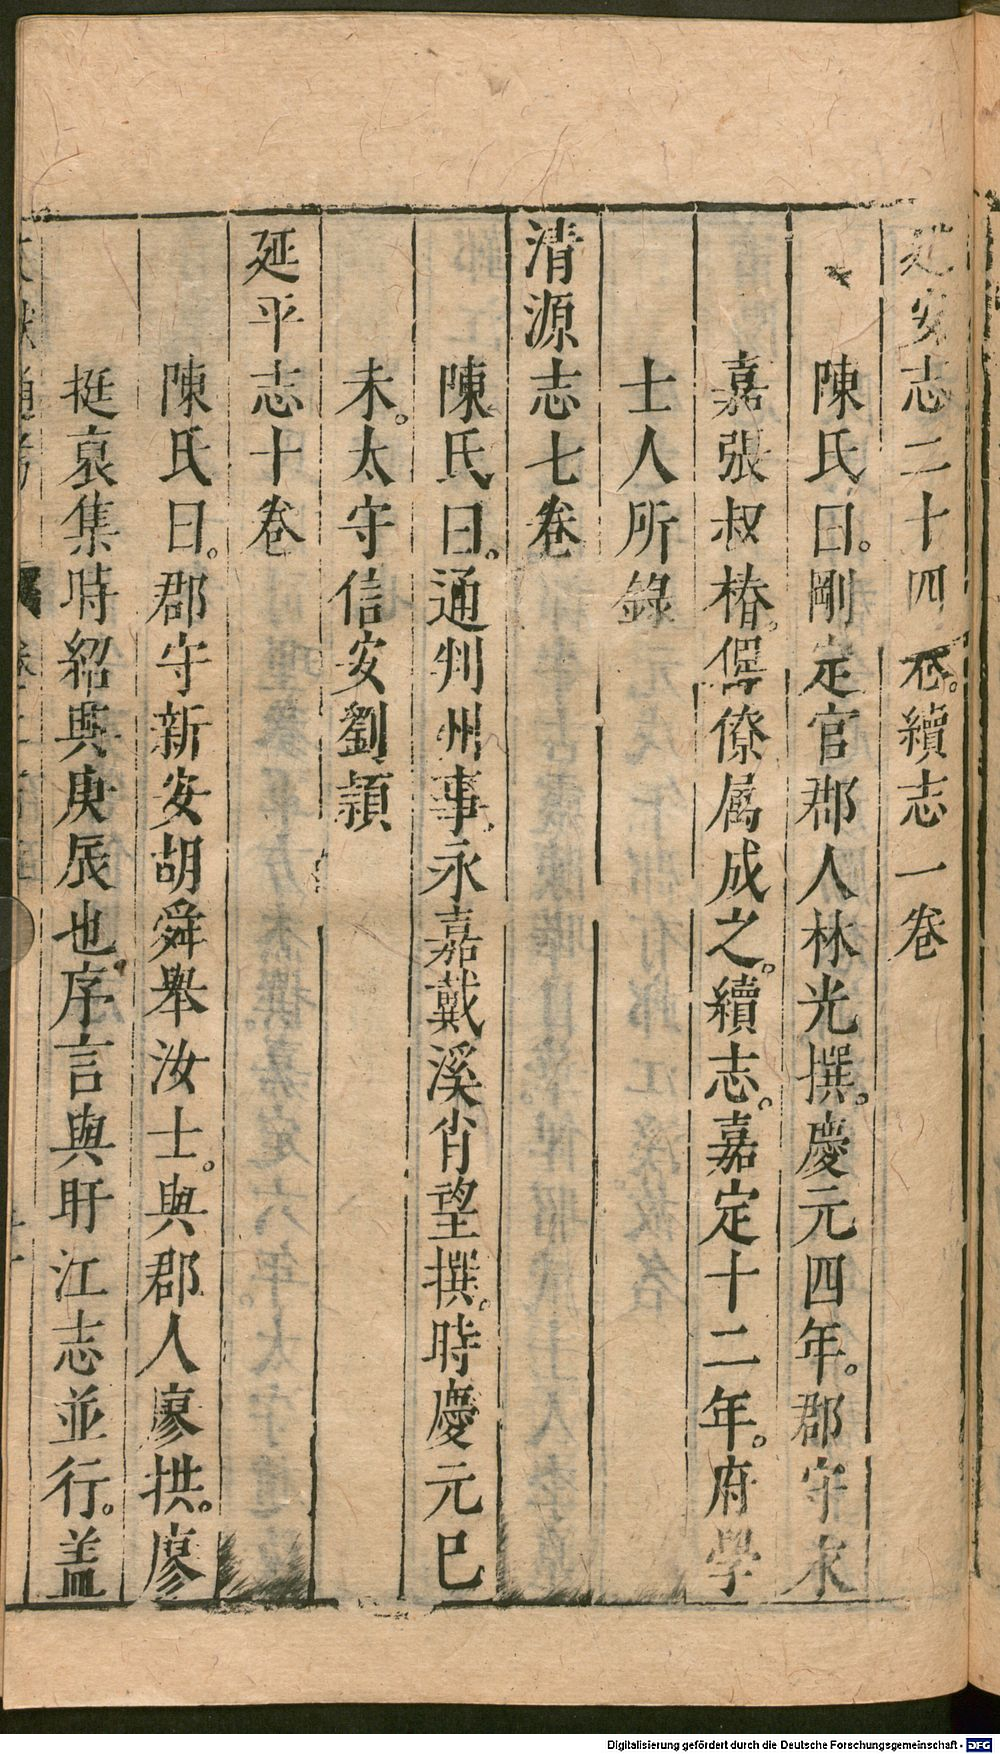 延安志二十四卷。續志一卷
陳氏曰。剛定官郡人林光撰。慶元四年。郡守永
嘉張叔椿。俾僚属成之。續志。嘉定十二年。府學
士人所錄
清源志七卷
陳氏曰。通判州事永嘉戴溪肖望撰。時慶元巳
未。太守信安劉頴
延平志十卷
陳氏曰。郡守新安胡舜舉汝士。與郡人廖拱。廖
挺裒集時紹興庚辰也。序言與盱江志並行。盖
通考
Digitalisierung gefördert durch die Deutsche Forschungsgemeinschaft - DFG